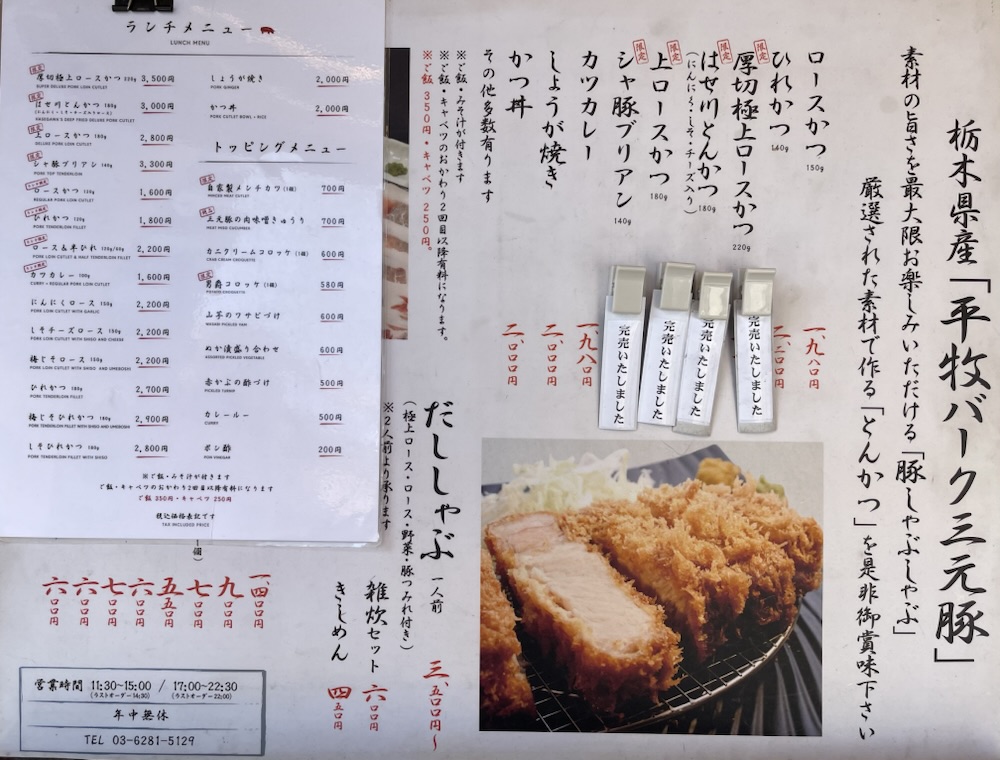 栃木県産「平牧バーク三元豚」
素材の旨さを最大限お楽しみいただける「豚しゃぶしゃぶ」
厳選された素材で作る「とんかつ」を是非御賞味下さい
ロースかつ 150g 一、九八〇円
ひれかつ 160g 二、二〇〇円
限定 厚切極上ロースかつ 220g
限定 はせ川とんかつ 180g
(にんにく・しそ・チーズ入り)
限定 上ロースかつ 180g
限定 シャ豚ブリアン 140g
完売いたしました
完売いたしました
完売いたしました
完売いたしました
カツカレー 一、九八〇円
しょうが焼き 二、〇〇〇円
かつ丼 二、〇〇〇円
その他多数有ります
※ご飯・みそ汁が付きます
※ご飯・キャベツのおかわり2回目以降有料になります。
※ご飯 350円・キャベツ 250円。
だししゃぶ 一人前 三、五〇〇円〜
(極上ロース・ロース・野菜・豚つみれ付き)
※2人前より承ります
雑炊セット 六〇〇円
きしめん 四五〇円
ランチメニュー
LUNCH MENU
限定 厚切極上ロースかつ 220g 3,500円
SUPER DELUXE PORK LOIN CUTLET
限定 はせ川とんかつ 180g 3,000円
HASEGAWA'S DEEP FRIED DELUXE PORK CUTLET
限定 上ロースかつ 180g 2,800円
DELUXE PORK LOIN CUTLET
限定 シャ豚ブリアン 140g 3,300円
PORK TOP TENDERLOIN
ロースかつ 120g 1,600円
REGULAR PORK LOIN CUTLET
ひれかつ 120g 1,800円
PORK TENDERLOIN FILLET
ロース&半ひれ 120g/60g 2,200円
PORK LOIN CUTLET & HALF TENDERLOIN FILLET
カツカレー 100g 1,600円
CURRY + REGULAR PORK LOIN CUTLET
にんにくロース 150g 2,200円
PORK LOIN CUTLET WITH GARLIC
しそチーズロース 150g 2,200円
PORK LOIN CUTLET WITH SHISO AND CHEESE
梅じそロース 150g 2,200円
PORK LOIN CUTLET WITH SHISO AND UMEBOSHI
ひれかつ 160g 2,700円
PORK TENDERLOIN FILLET
梅じそひれかつ 160g 2,900円
PORK TENDERLOIN FILLET WITH SHISO AND UMEBOSHI
しそひれかつ 160g 2,800円
PORK TENDERLOIN FILLET WITH SHISO
しょうが焼き 2,000円
PORK GINGER
かつ丼 2,000円
PORK CUTLET BOWL + RICE
トッピングメニュー
限定 自家製メンチカツ(1個) 700円
MINCED MEAT CUTLET
三元豚の肉味噌きゅうり 700円
MEAT MISO CUCUMBER
カニクリームコロッケ(1個) 600円
CRAB CREAM CROQUETTE
限定 男爵コロッケ(1個) 580円
POTATO CROQUETTE
山芋のワサビづけ 600円
WASABI PICKLED YAM
ぬか漬盛り合わせ 600円
ASSORTED PICKLED VEGETABLE
赤かぶの酢づけ 500円
PICKLED TURNIP
カレールー 500円
CURRY
ポン酢 200円
PON VINEGAR
※ご飯・みそ汁が付きます
ご飯・キャベツのおかわり2回目以降有料になります
ご飯 350円・キャベツ 250円
税込価格表記です
TAX INCLUDED PRICE
1個)
一、四〇〇円
九〇〇円
七〇〇円
五五〇円
六〇〇円
七〇〇円
六〇〇円
六〇〇円
営業時間 11:30~15:00 / 17:00~22:30
(ラストオーダー14:30) (ラストオーダー22:00)
年中無休
TEL 03-6281-5129